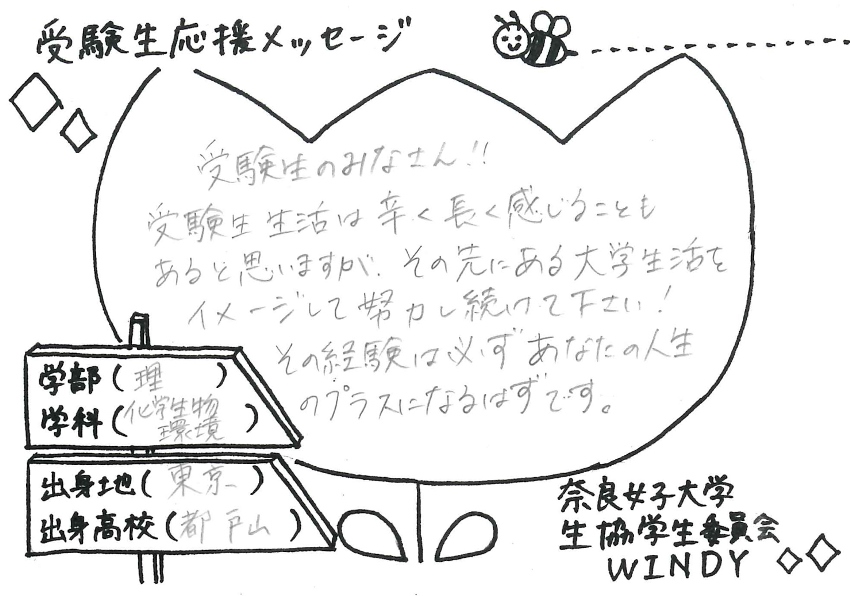 受験生応援メッセージ
受験生のみなさん!!
受験生生活は辛く長く感じることも
あると思いますが、その先にある大学生活を
イメージして努力し続けて下さい!
その経験は必ずあなたの人生
のプラスになるはずです。
学部(理)
学科(化学生物
環境)
出身地(東京)
出身高校(都戸山)
奈良女子大学
生協学生委員会
WINDY